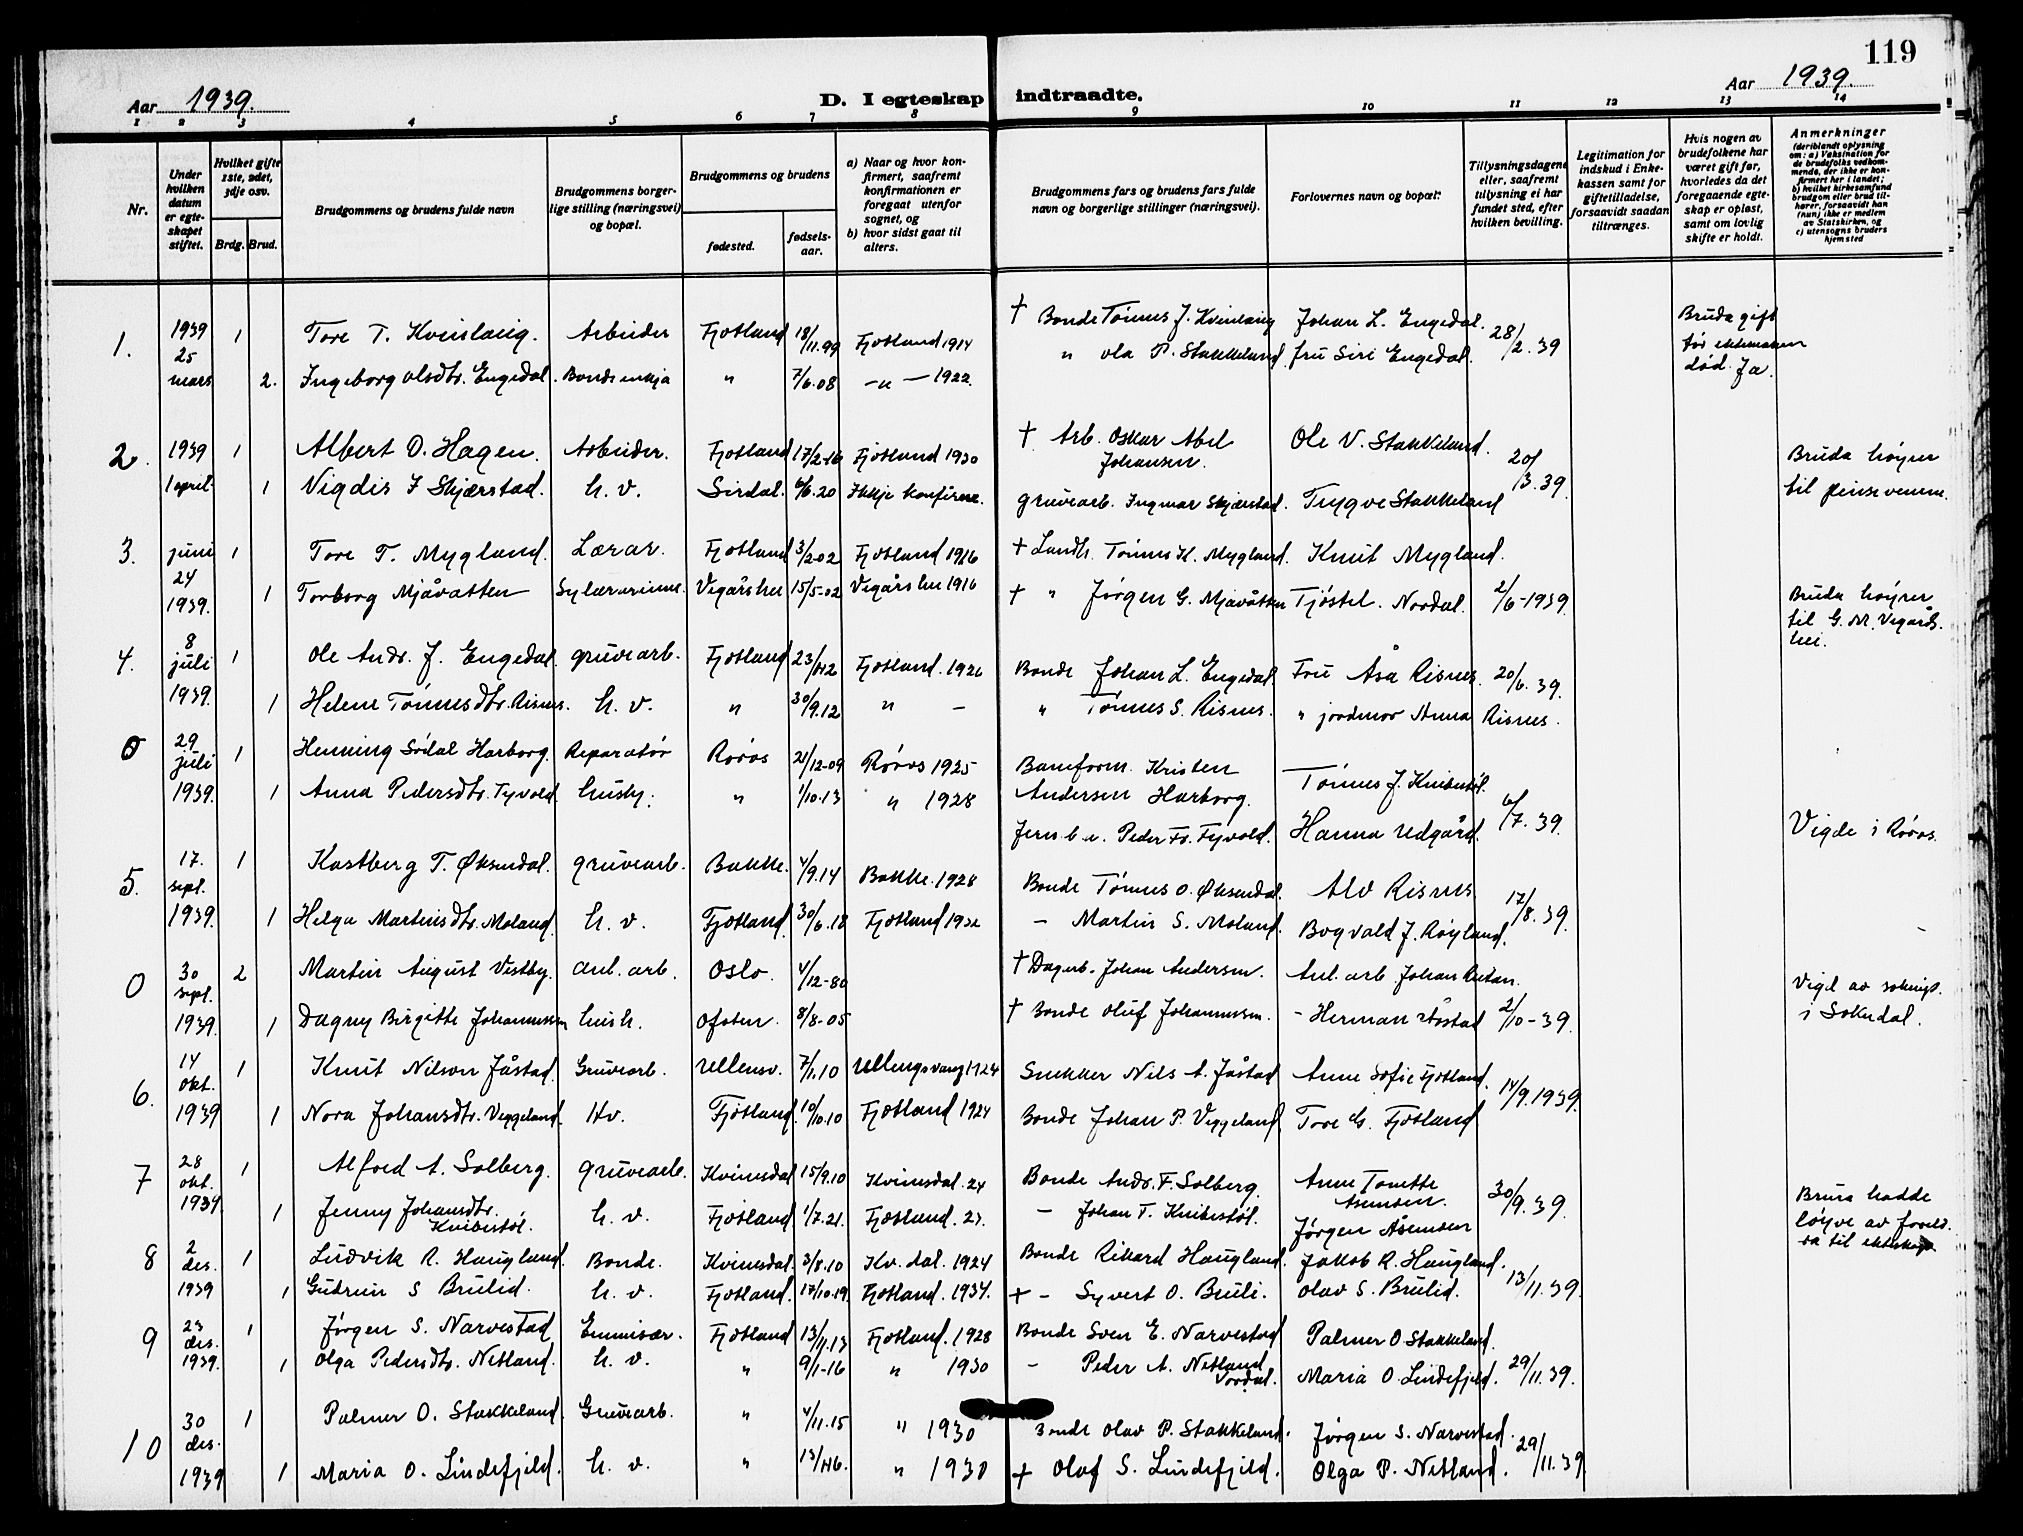 119
Aar 1939.
D. I egteskap indtraadte.
Aar 1939.
1 2 3 4 5 6 7 8 9 10 11 12 13 14
Nr.
Under hvilken datum er egteskapet stiftet.
Hvilket gifte 1ste, 2det, 3dje osv.
Brdg. Brud.
Brudgommens og brudens fulde navn
Brudgommens borgerlige stilling (næringsvei) og bopæl.
Brudgommens og brudens
fødested.
fødselsaar.
a) Naar og hvor konfirmert, saafremt konfirmationen er foregaat utenfor sognet, og
b) hvor sidst gaat til alters.
Brudgommens fars og brudens fars fulde navn og borgerlige stillinger (næringsvei).
Forlovernes navn og bopæl.
Tillysningsdagene eller, saafremt tillysning ei har fundet sted, efter hvilken bevilling.
Legitimation for indskud i Enkekassen samt for giftetilladelse, forsaavidt saadan tiltrænges.
Hvis nogen av brudefolkene har været gift før, hvorledes da det foregaaende egteskap er opløst, samt om lovlig skifte er holdt.
Anmerkninger
(deriblandt oplysning om: a) Vaksination for de brudefolks vedkommende, der ikke er konfirmert her i landet; b) hvilket kirkesamfund brudgom eller brud tilhører, forsaavidt han (hun) ikke er medlem av Statskirken, og c) utensogns bruders hjemsted
1. 1939 25 mars 1 Tore T. Kvinlaug. Arbeider Fjotland 18/11.99 Fjotland 1914 † Bonde Tønnes J. Kvinlaug Johan L. Engedal. 28/2.39 Bruda gift før ektemannen død. Ja.
2. Ingeborg olsdtr. Engedal. Bondeenkja " 7/6.08 —"— 1922. " ola P. Stakkeland fru Siri Engedal.
2. 1939 1 april 1 Albert O. Hagen. Arbeider. Fjotland 17/2-16 Fjotland 1930 † Arb. Oskar Abel Johansen. Ole V. Stakkeland. 20/3.39
1 Vigdis I Skjærstad. h. v. Sirdal. 6/6.20 Ikkje konfirm. gruvearb. Ingmar Skjærstad. Trygve Stakkeland Bruda høyrer til pinsevenene.
3. juni 24 1939. 1 Tore T. Mygland. Lærar. Fjotland 3/2-02 Fjotland 1916 † Landh. Tønnes K. Mygland. Knut Mygland.
1 Torborg Mjåvatten Sylærarinne. Vegårshei 15/5-02 Vegårshei 1916 † " Jørgen G. Mjåvatten Tjøstel. Nordal. 2/6-1939. Bruda høyrer til G. M. Vegårdshei.
4. 8 juli 1939. 1 Ole Andr. J. Engedal. gruvearb. Fjotland 23/ Fjotland. 1926 Bonde Johan L. Engedal. Fru Åsa Risnes. 20/6.39.
1 Helene Tønnesdtr. Risnes. h. v. " 30/9.12 " – " Tønnes S. Risnes. " jordmor Anna Risnes.
0 29 juli 1939. 1 Henning Sødal Harborg. Reparatør Røros 21/12-09 Røros 1925 Baneform. Kristen Andersen Harborg. Tønnes J. Knibestøl. 6/7.39.
1 Anna Pedersdtr. Tyvold. husby. " 1/10.13 " 1928 Jernb. Peder Fr. Tyvold. Hanna Udgård. Vigde i Røros.
5. 17. sept. 1939. 1 Kastberg T. Øksendal. gruvearb. Bakke. 4/9.14 Bakke. 1928 Bonde Tønnes O. Øksendal. Alv Risnes. 17/8.39.
1 Helga Martinsdtr. Moland. h. v. Fjotland. 30/6.18 Fjotland 1932 – Martin S. Moland. Bogvald J. Røyland.
0 30 sept. 1939. 2 Martin August Vestby. anl. arb. Oslo. 4/12-80 † Dagarb. Johan Andersen. Anl. arb Johan 2/10-39. Vigd av sokneprs. i Sokndal.
1 Dagny Birgitte Johannessen hush. Ofoten. 8/8-05 † Bonde Oluf Johannessen. – Herman
6. 14 okt. 1939 1 Knut Nilson Jåstad. Gruvearb. Ullensv. 7/1.10 Ullensvang 1924 Snekker Nils A. Jåstad Anne Sofie Fjotland. 14/9.1939.
1 Nora Johansdtr. Veggeland. Hv. Fjotland. 10/10.10 Fjotland 1924 Bonde Johan P. Veggeland. Tore G. Fjotland
7 28 okt. 1939. 1 Alfred A. Solberg. gruvearb. Kvinesdal 15/9.10 Kvinesdal. 24 Bonde Andr. F. Solberg. Anne Tonette Asensen. 30/9.39.
1 Jenny Johansdtr. Knibestøl. h. v. Fjotland. 1/7.21. Fjotland. 27. – Johan T. Knibestøl. Jørgen Åsensen Brura hadde løyve av foreldra til ekteskap.
8 2 des. 1939 1 Ludvik R. Haugland. Bonde. Kvinesdal. 3/8.10 Kv. dal. 1924 Bonde Rikard Haugland. Jakob R. Haugland. 13/11.39.
1 Gudrun S Brulid. h. v. Fjotland. 17/10.19. Fjotland. 1934. † – Syvert O. Bruli. Olav S. Brulid.
9 23 des. 1939. 1 Jørgen S. Narvestad Emmisær. Fjotland 13/9.13 Fjotland. 1928 Bonde Sven E. Narvestad Palmer O. Stakkeland.
1 Olga Pedersdtr. Netland. h. v. " 9/1-16 " 1930 – Peder A. Netland Vordal. Maria O. Lindefjeld. 29/11.39.
10 30 des. 1939 1 Palmer O. Stakkeland. Gruvearb. " 4/11.15 " 1930 Bonde Olav P. Stakkeland. Jørgen S. Narvestad. 29/11.39.
1 Maria O. Lindefjeld. h. v. " " 1930 † Olaf S. Lindefjeld. Olga P. Netland.